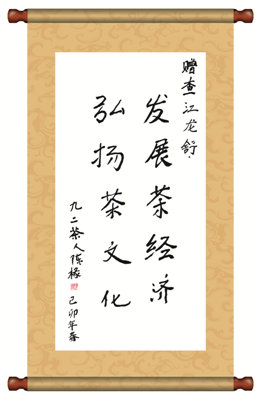 赠查江龙舒.
发展茶经济
弘扬茶文化
九二茶人陈椽
己卯年春